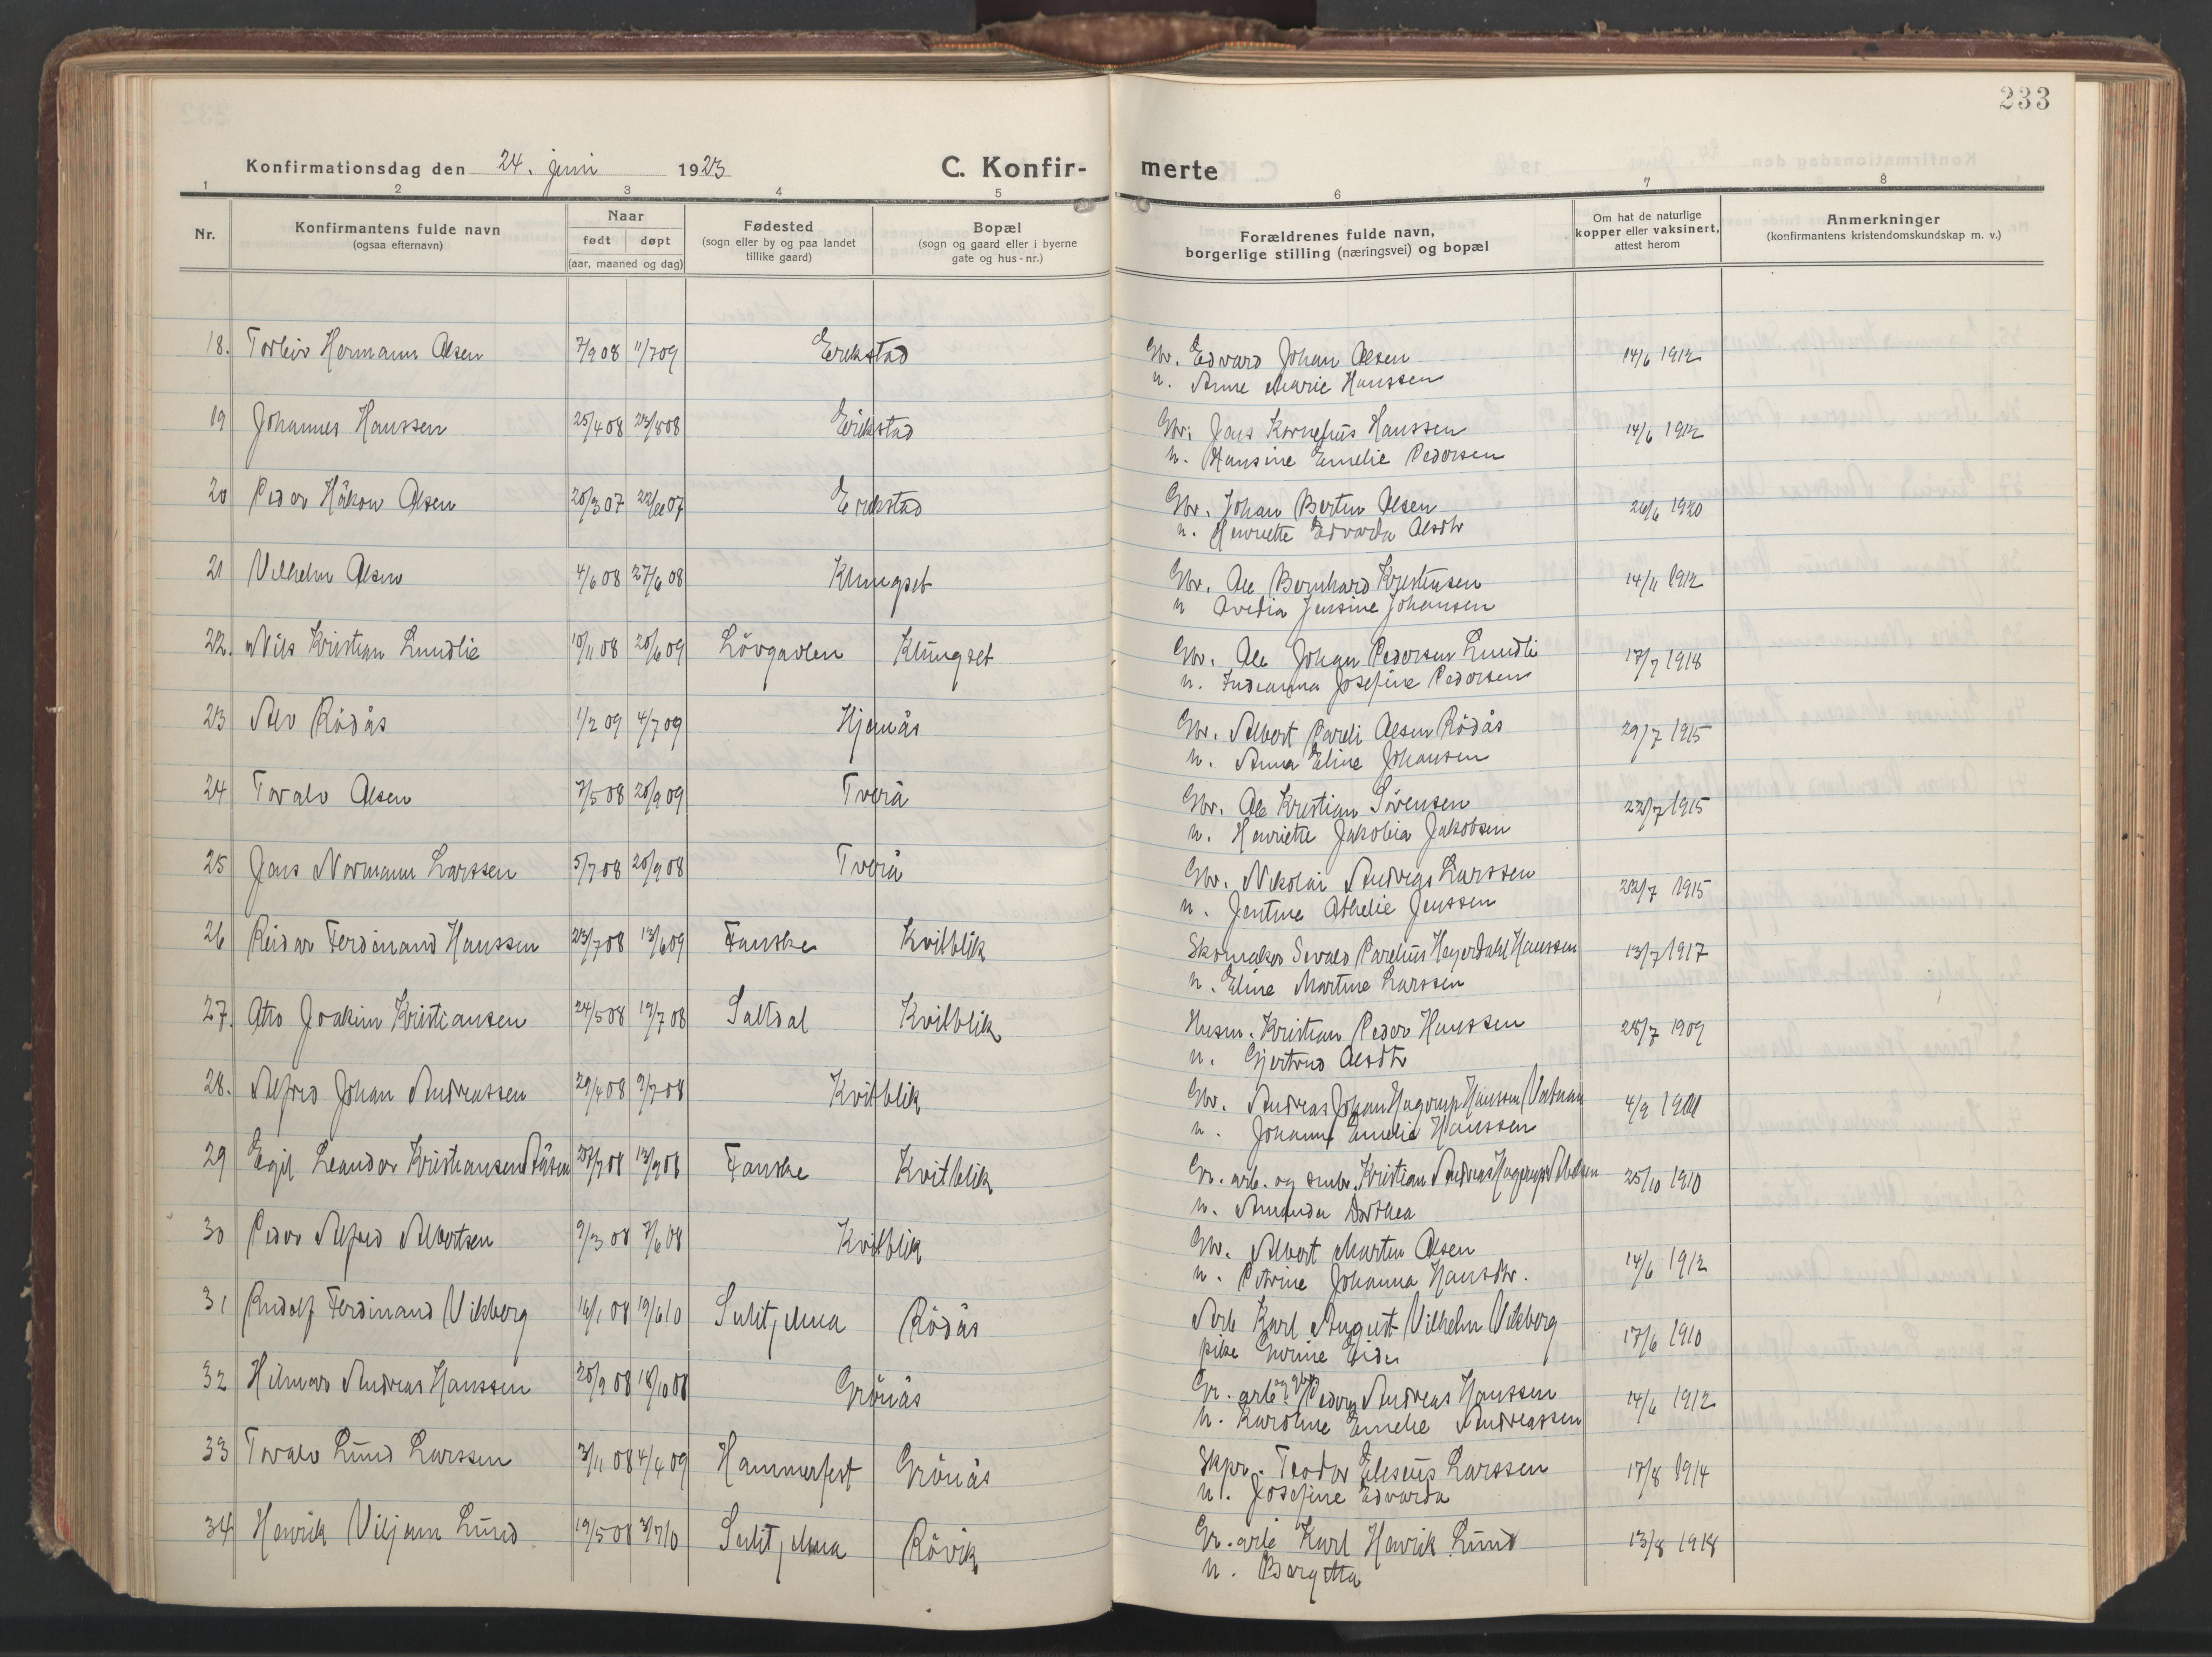 233
Konfirmationsdag den 24. juni 1923 C. Konfir- merte
1 2 3 4 5 6 7 8
Nr. Konfirmantens fulde navn (ogsaa efternavn) Naar født døpt (aar, maaned og dag) Fødested (sogn eller by og paa landet tillike gaard) Bopæl (sogn og gaard eller i byerne gate og hus-nr.) Forældrenes fulde navn, borgerlige stilling (næringsvei) og bopæl Om hat de naturlige kopper eller vaksinert, attest herom Anmerkninger (konfirmantens kristendomskundskap m. v.)
18. Torleiv Hermann Olsen 7/9 08 11/7 09 Erikstad Gbr. Edvard Johan Olsen 14/6 1912
n. Anne Marie Hanssen
19 Johannes Hanssen 25/4 08 23/8 08 Erikstad Gbr. Jens Kornelius Hanssen 14/6 1912
n. Hansine Emelie Pedersen
20 Peder Håkon Olsen 20/3 07 22/ 07 Erikstad Gbr. Johan Bertin Olsen 26/6 1920
n. Henriette Edvarda Olsdtr
21 Vilhelm Olsen 4/6 08 27/6 08 Klungset Gbr. Ole Bernhard Kristensen 14/11 1912
n Ovedia Jensine Johansen
22. Nils Kristian Lundlie 10/11 08 20/6 09 Lövgavlen Klungset Gbr. Ole Johan Pedersen Lundli 17/7 1918
n. Indianna Josefine Pedersen
23 Alv Rödås 1/2 09 4/7 09 Hjemås Gbr. Albert Pareli Olsen Rödås 29/7 1915
n. Anna Eline Johansen
24 Toralv Olsen 7/5 08 20/9 09 Tverå Gbr. Ole Kristian Sörensen 22/7 1915
n. Henriette Jakobia Jakobsen
25 Jens Normann Larssen 5/7 08 20/9 08 Tverå Gbr. Nikolai Andreas Larssen 22/7 1915
n. Jentine Othelie Jenssen
26 Reidar Ferdinand Hanssen 23/7 08 13/6 09 Fauske Kvitblik Skomaker Sevald Parelius Heyerdahl Hanssen 13/7 1917
n. Eline Martine Larssen
27. Otto Joakim Kristiansen 24/5 08 19/7 08 Saltdal Kvitblik Husm. Kristian Peder Hanssen 28/7 1909
n. Gjertrud Olsdtr
28. Alfred Johan Andreassen 29/4 08 9/7 08 Kvitblik Gbr. Andreas Johan Hagerup Hanssen Valnan 4/9
n. Johanna Emelie Hanssen
29 Egil Leander Kristiansen Åsen 27/7 08 13/9 08 Fauske Kvitblik Gr. arb. og smbr. Kristian Andreas Hagerup Abelsen 25/10 1910
n. Amanda Dorthea
30 Peder Alfred Albertsen 9/3 08 7/6 08 Kvitblik Gbr. Albert Martin Olsen 14/6 1912
n. Petrine Johanna Hansdtr.
31 Rudolf Ferdinand Vikberg 16/1 08 19/6 10 Sulitjelma Rödås Arb Karl August Vilhelm Vikberg 17/6 1910
pike Eide
32 Hilmar Andreas Hanssen 20/9 08 18/10 08 Grönås Gr. arb. og gbr. Peder Andreas Hanssen 14/6 1912
n. Karoline Emelie Andreassen
33 Toralv Lund Larssen 3/11 08 4/4 09 Hammerfest Grönås Skpr. Teodor Eliseus Larssen 17/8 1914
n. Josefine Edvarda
34 Henrik Viljam Lund 19/5 08 3/7 10 Sulitjelma Rövik Gr. arb Karl Henrik Lund 13/8 1918
n. Bergitta